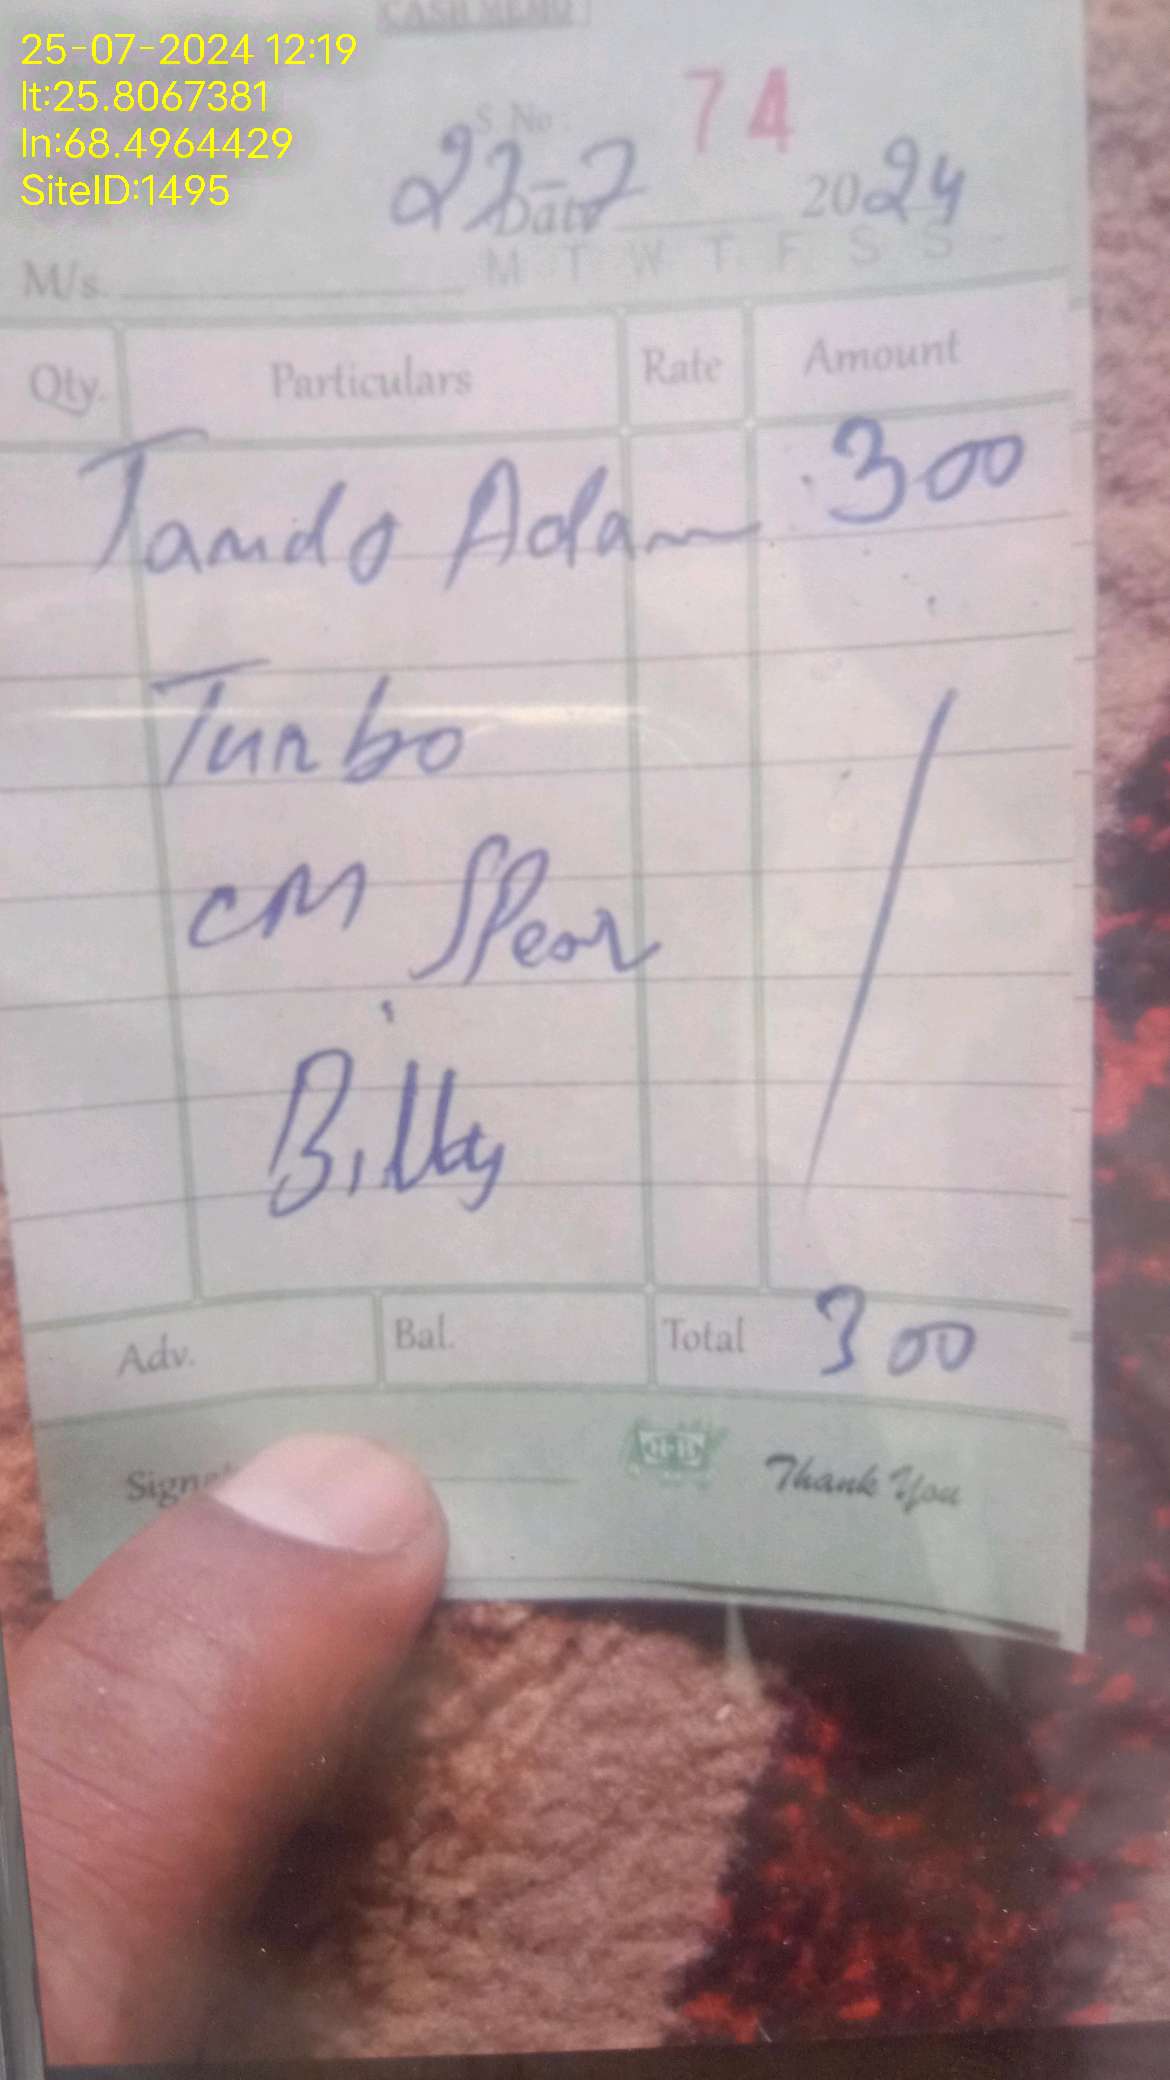 CASH MEMO
25-07-2024 12:19
lt:25.8067381
ln:68.4964429
SiteID:1495
S. No 74
Date 22-7 2024
M T W T F S S
M/s.
Qty. Particulars Rate Amount
Tando Adam 300
Turbo
CM Spear
Billty
Adv. Bal. Total 300
Thank You